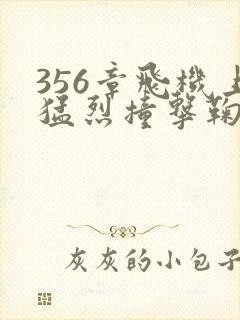 356章飛機上
猛烈撞擊鞠
灰灰的小包子